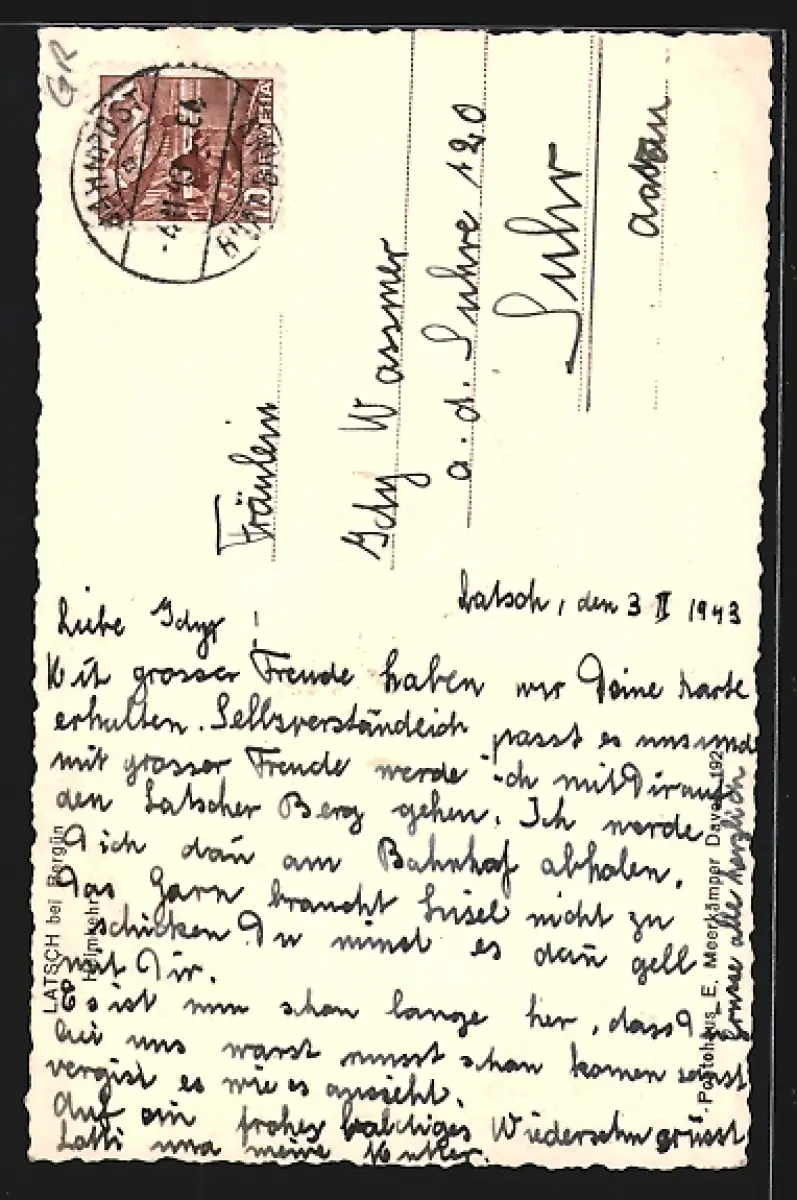 GR
BAHNPOST
HELVETIA
10
Fräulein
Idy Wassmer
a. d. Suhre 120
Suhr
Aarau
Latsch, den 3 II 1943
Liebe Idy !
Mit grosser Freude haben wir Deine Karte
erhalten. Selbsverständlich passt es uns und
mit grosser Freude werde ich mit Dir auf
den Latscher Berg gehen. Ich werde
Dich dan̄ am Bahnhof abholen.
Das Garn braucht Lisel nicht zu
schicken Du nimst es dan̄ gell
mit Dir.
Es ist nun schon lange her, dass D
bei uns warst musst schon komen sonst
vergist es wie es aussieht.
Auf ein frohes baldiges Wiedersehn grüsst
und meine Mutter.
Grüsse alle herzlich
LATSCH bei Bergün
Heimkehr
Photohaus E. Meerkämper Davos 192